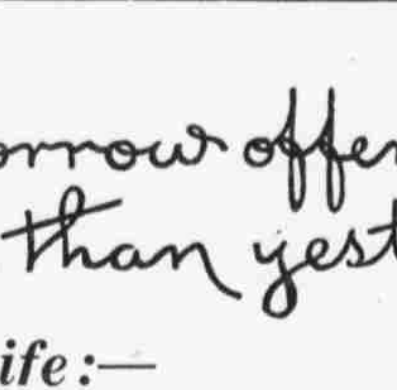 orrow offer
than yest
ife:—